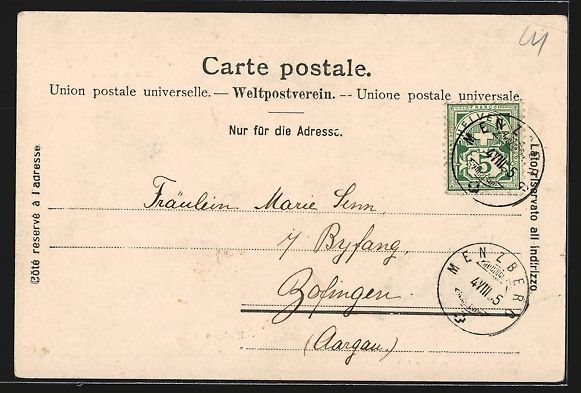 Carte postale.
Union postale universelle. — Weltpostverein. -- Unione postale universale.
Nur für die Adresse.
Côté réservé à l'adresse
Lato riservato all'indirizzo
FRANCO
HELVETIA
5
MENZBERG
4 VIII. 5
Fräulein Marie Senn,
Byfang,
Zofingen.
(Aargau.)
MENZBERG
4 VIII. 5